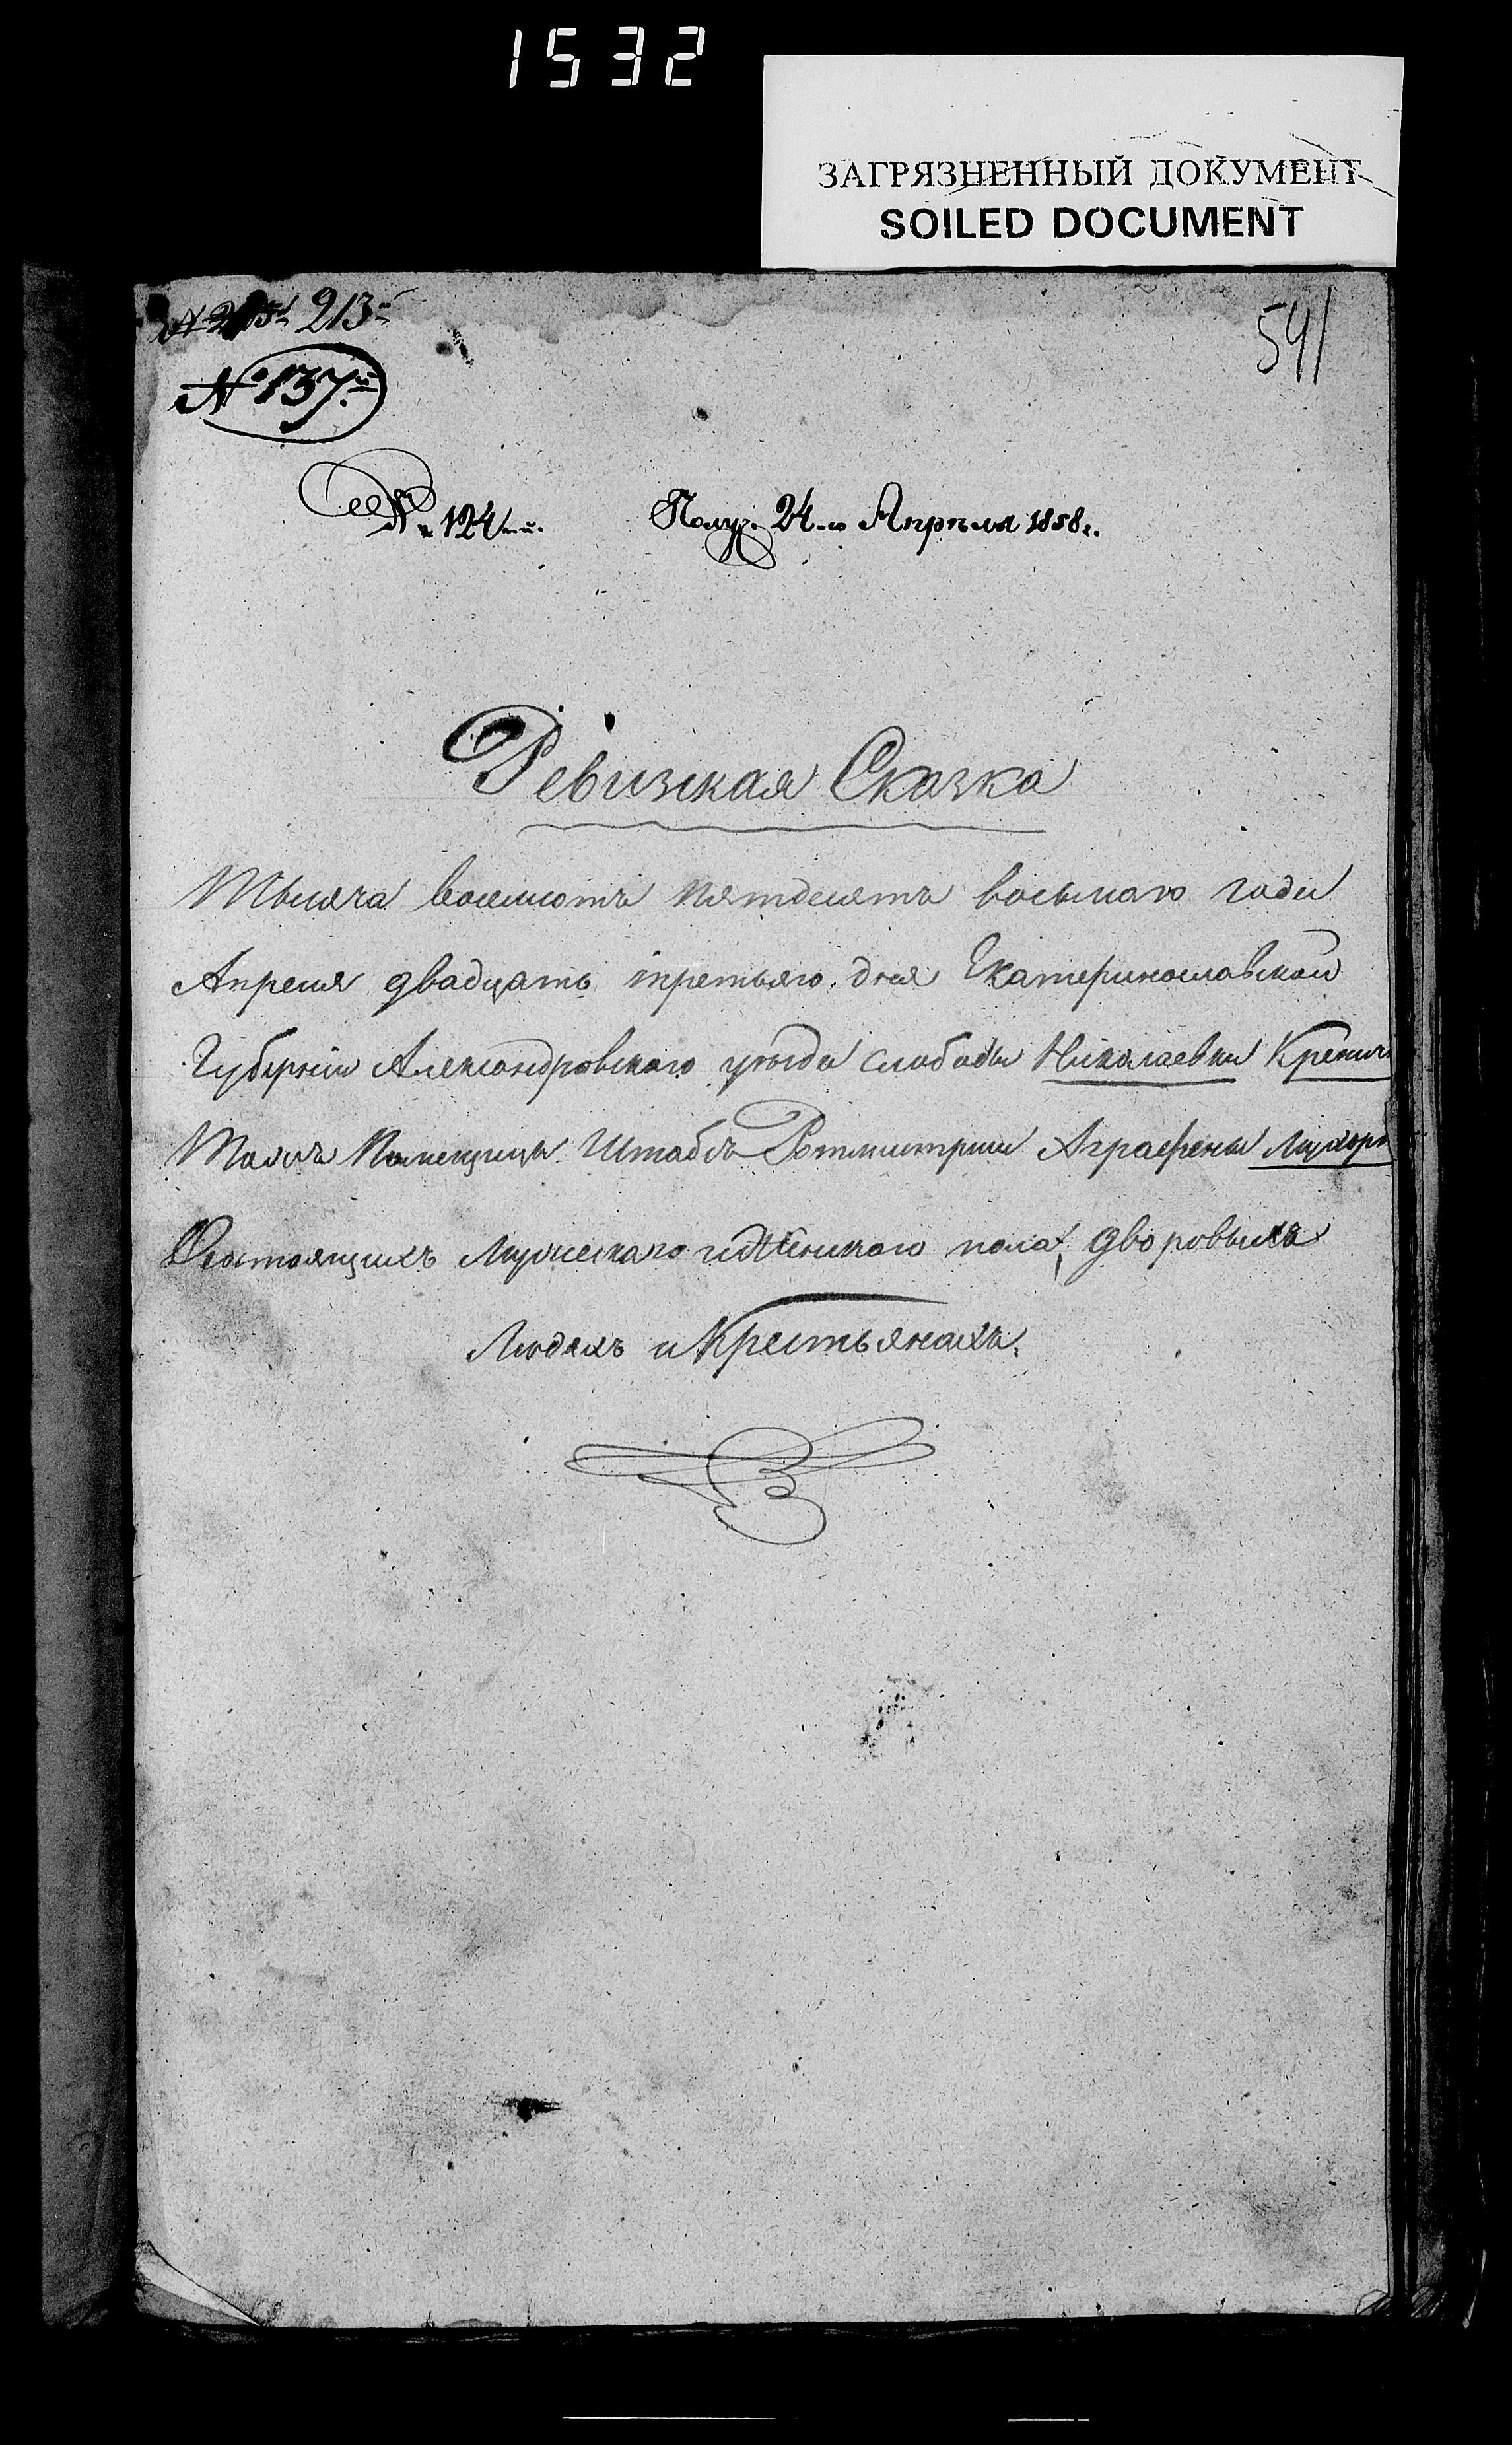 1532
ЗАГРЯЗНЕННЫЙ ДОКУМЕНТ
SOILED DOCUMENT
213й
541
№ 137й.
№ 124й. Получ. 24го Апрѣля 1858 г.
Ревизская Сказка
Тысяча восемсотъ пятдесятъ восьмаго года
Апреля двадцать третьяго дня Екатеринославской
Губернии Александровскаго уезда слободы Николаевки
Тожъ Помещицы Штабсъ Ротмистрши Аграфены
Состоящихъ Мужескаго и Женскаго пола, дворовыхъ
Людяхъ и Крестьянахъ.